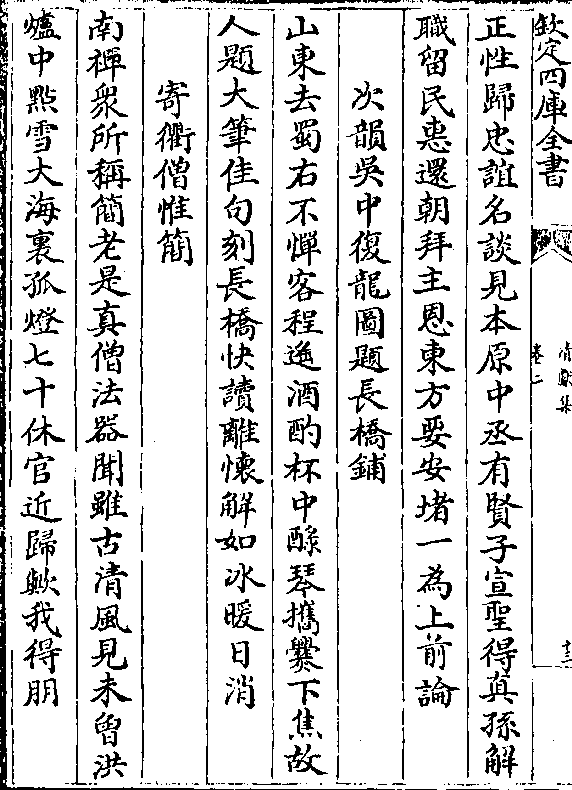 欽定四庫全書
清獻集
卷二
十三
正性歸忠誼名談見本原中丞有賢子宣聖得真孫解
職留民惠還朝拜主恩東方要安堵一為上前論
次韻吳中復龍圖題長橋鋪
山東去蜀右不憚客程遥酒酌杯中醁琴攜爨下焦故
人題大筆佳句刻長橋快讀離懷解如冰暖日消
寄衢僧惟簡
南禪衆所稱簡老是真僧法器聞雖古清風見未曾洪
爐中點雪大海裏孤燈七十休官近歸歟我得朋